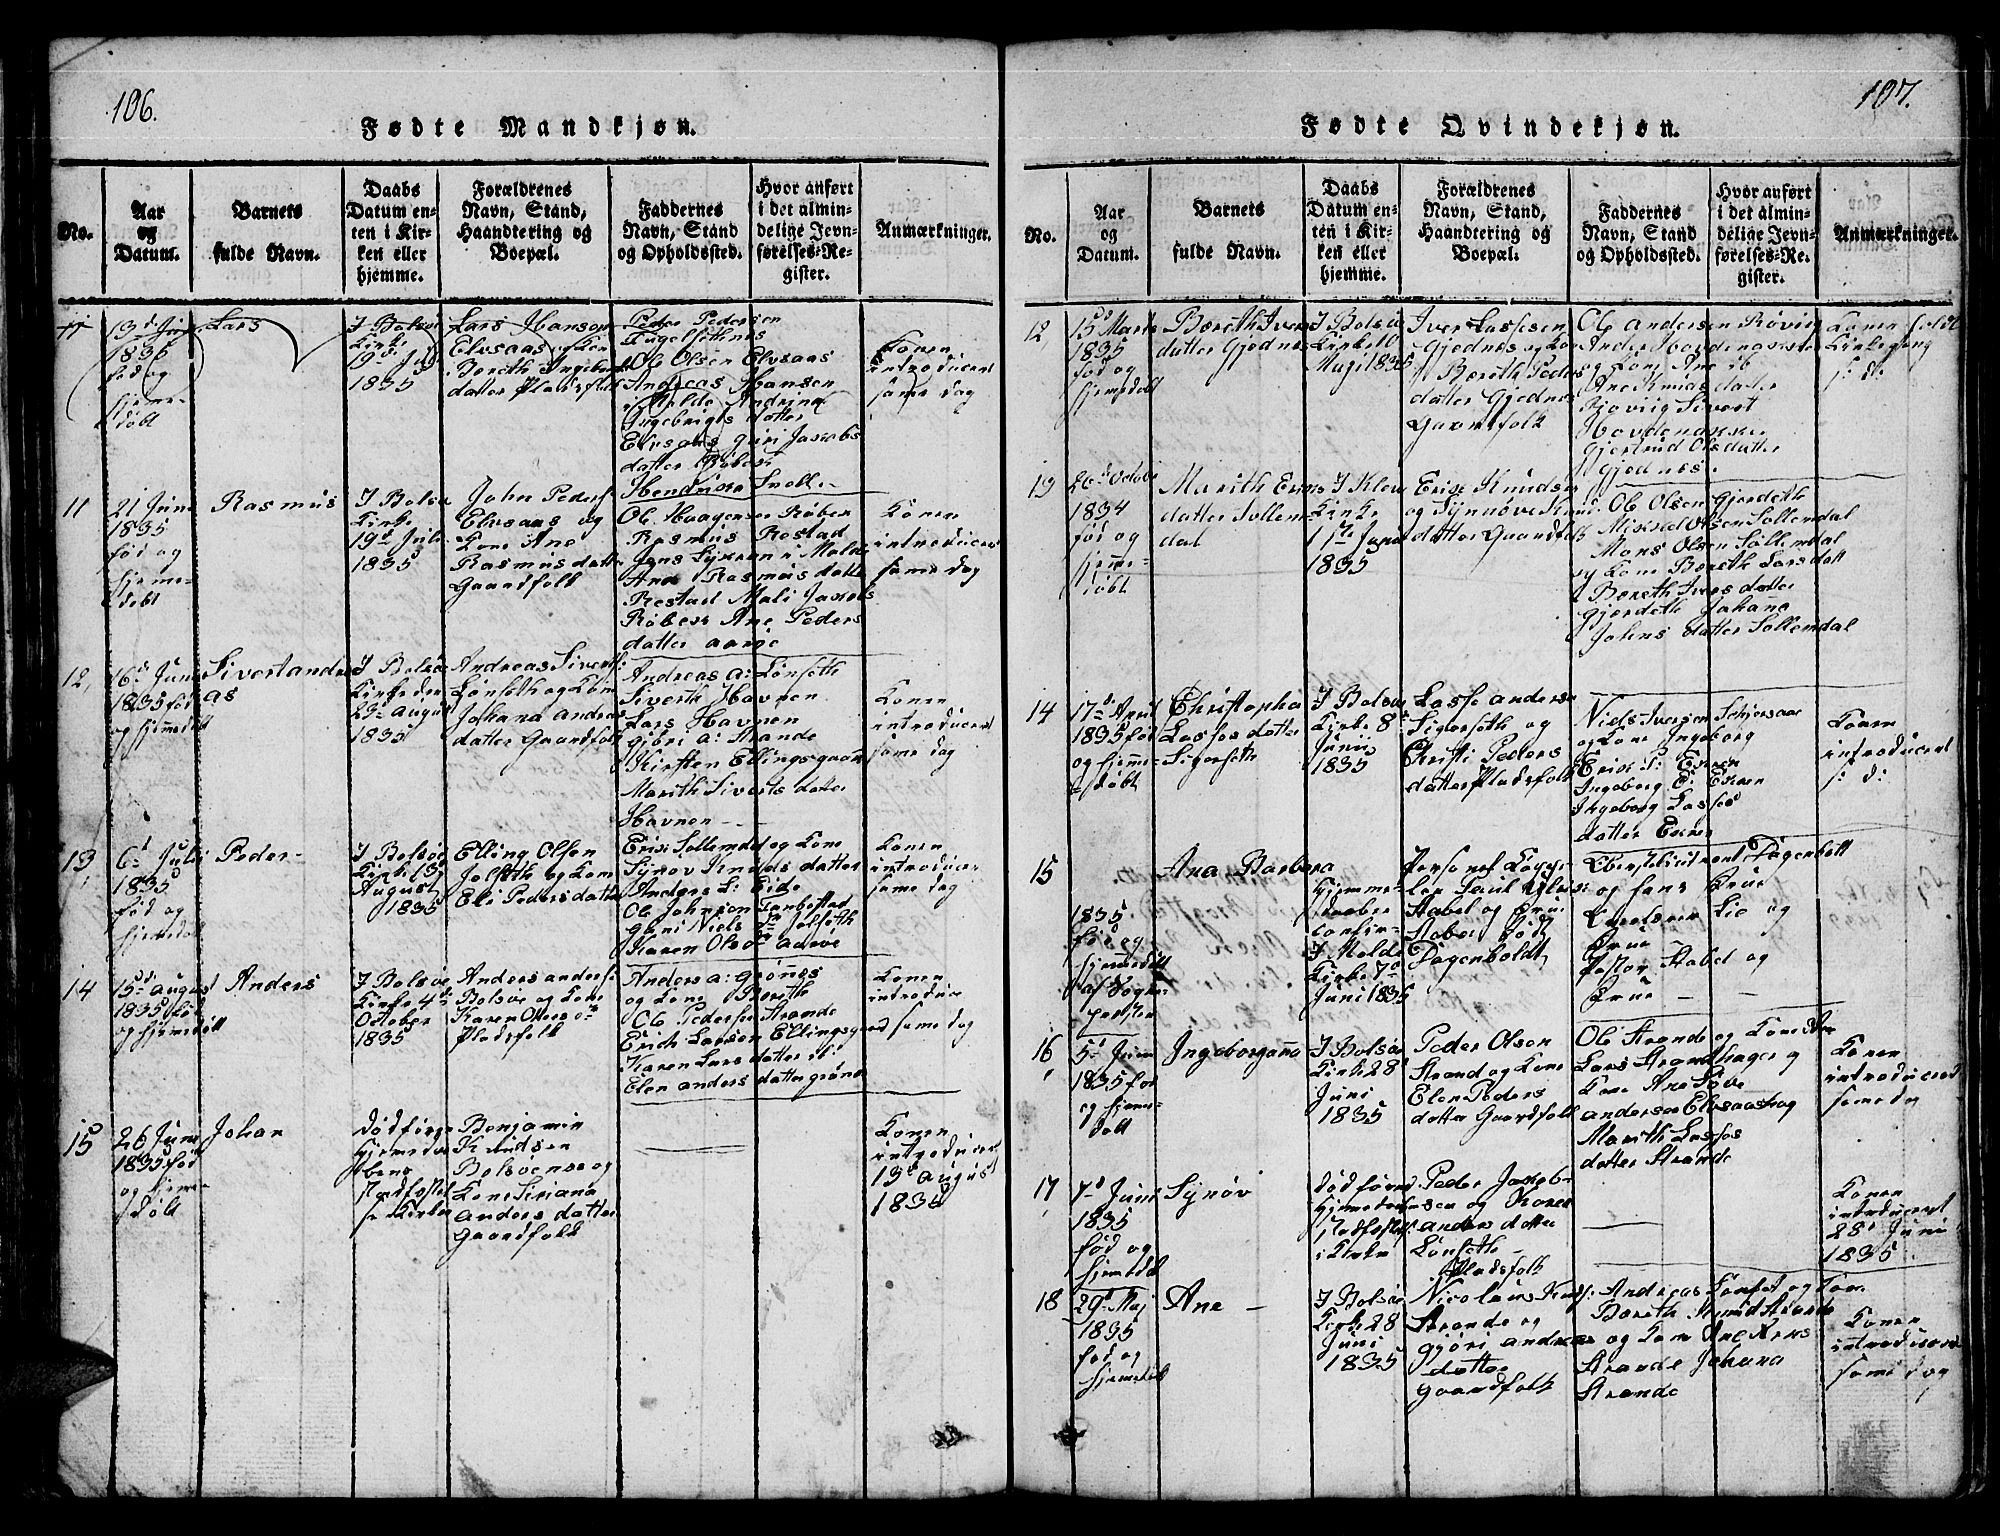 106.
Fødte Mandkjøn.
No.
Aar
og
Datum.
Barnets
fulde Navn.
Daabs
Datum en-
ten i Kir-
ken eller
hjemme.
Forældrenes
Navn, Stand,
Haandtering og
Boepæl.
Faddernes
Navn, Stand
og Opholdssted.
Hvor anført
i det almin-
delige Jevn-
førelses-Re-
gister.
Anmærkninger.
11
1835
fød og
hjemme-
døbt
Lars
I Bolsø
Kirke
1835
Lars Hansen
Elvsaas
Bereth Ingebrigts
datter Pladsfolk
Peder Pedersen
Ole Olsen Elvsaas
Andreas Hansen
Molde Andrine
Ingebrigts datter
Elvsaas Guri Jakobs
datter Røbek
Konen
introduceret
same dag
11
21 Juni
1835
fød og
hjeme-
døbt
Rasmus
I Bolsø
Kirke
19d Juli
1835
John Peders:
Elvsaas og
Kone Ane
Rasmus datter
Gaardfolk
Ole Haagensen Røbek
Rasmus Rostad
Jens i Molde
Ane Rasmus datter
Rostad Mali Jakobs
Røbek Ane Peders
datter aarøe
Konen
introduceret
same dag
12,
16d Juni
1835 fød
og hjemedøbt
Sivert andre
as
I Bolsø
Kirke den
23d august
1835
Andreas Siverts:
Lønseth og Kone
Johana andreas
datter Gaardfolk
Andreas a: Lønseth
Siverth Havnen
Lars Havnen
Gjøri a: Strande
Kirsten Ellingsgaard
Marith Siverts datter
Havnen
Konen
introduceret
same dag
13,
6d Juli
1835
fød og
hjemedøbt
Peder
I Bolsøe
Kirke
August
1835
Elling Olsen
Jolseth og Kone
Eli Peders datter
Erik Sollemdal og Kone
Synøv Knuds datter
Anders S: Eide
Ole Johnsen Tarbestad
Guri Niels Da Jolseth
Karen Ols Da aarøe
Konen
introduceret
same dag
14
15d august
1835 fød
og hjemedøbt
Anders
I Bolsøe
Kirke 4de
October
1835
Anders anders:
Bolsøe og Kone
Karen
Pladsfolk
Anders a: Grønnes
og Kone Bereth
Ole Pedersen Strande
Erich Larsen Ellingsgaard
Karen Lars datter ib:
Elen anders datter Grønnes
Konen
introduceret
same dag
15
26 Juni
1835 fød
og hjeme-
døbt
Johan
dødførge
hjemedø
Benjamin
Knudsen
Bolsøense og
Kone Siriana
anders datter
Gaardfolk
Konen
introduceret
13d august
1835
107.
Fødte Qvindekjøn.
No.
Aar
og
Datum.
Barnets
fulde Navn.
Daabs
Datum en-
ten i Kir-
ken eller
hjemme.
Forældrenes
Navn, Stand,
Haandtering og
Boepæl.
Faddernes
Navn, Stand
og Opholdssted.
Hvor anført
i det almin-
delige Jevn-
førelses-Re-
gister.
Anmærkninger.
12
15d Marts
1835
fød og
hjemedøbt
Bereth Ivers
datter Gjednes
I Bolsøe
Kirke 10
Maji 1835
Iver Lassesen
Gjednes og Kone
Bereth Peders
datter Gjednes
Gaardfolk
Ole Andersen Røviig
Ander Hovdenakken
og Kone Ane ib
Ane Knuds datter
Røviig Sivert
Hovdenakken
Gjertrud Olsdatter
Gjednes
Konen holdt
Kirkegang
s: d:
13
26d October
1834
fød og
hjeme-
døbt
Marith Eriks
datter Sollem-
dal
I Kleve
Kirke
17d Juni
1835
Erik Knudsen
og Synnøve Knuds
datter Gaardfolk
Ole Olsen Gjerdeth
Mikkel Olsen Sollemdal
Mons Olsen Sollemdal
og Kone Bereth Larsdatt
Bereth Ivers datter
Gjerdeth Johane
Johns datter Sollemdal
14
17d April
1835 fød
og hjeme-
døbt
Christopha
Lasses datter
Sigerseth
I Bolsøe
Kirke 8d
Junii
1835
Lasse anders:
Sigerseth og
Christi Peders
datter Pladsfolk
Niels Iversen
og Kone Ingeborg
Erik S: Exren
Ingeborg E: Exren
Ingeborg Lasses
datter Exren
Konen
introduceret
s: d:
15
1835
fød og
hjemedøbt
af Sogne-
presten
Ana Barbara
hjemme-
daaben
confir-
I Molde
Kirke 7d
Juni 1835
Personel Capel-
lan Paul
Stabel og Frue
fød
Pagenboldt
Oberstlieutnant Pagenbolt
og hans Frue
Lie og
Frue
Pastor Stabel og
Frue
16
5d Juni
1835 fød
og hjeme-
døbt
Ingeborganna
I Bolsøe
Kirke 28d
Juni
1835
Peder Olsen
Strand og Kone
Elen Peders
datter Gaardfolk
Ole Strande og Kone
Lars Strandhagen og
Kone Ane Tøve
andersen Elvsaashag
Marith Lasses
datter Strande
Konen
introduceret
same dag
17
7d Juni
1835
fød og
hjemedøbt
Synøv
dødføren
i Kirken
Peder Jakob-
sen og Karen
anders datter
Lønseth
Pladsfolk
Konen
introduceret
28d Juni
1835
18
29d Maj
1835
fød og
hjemedøbt
Ane
I Bolsøe
Kirke 28
Juni
1835
Nicolaus Knuds:
Strande og
Gjøri andreas
datter
Gaardfolk
Andreas og Kone
Bereth Strande
og Kone Ane
Strande Johana
Strande
Konen
introduceret
same dag